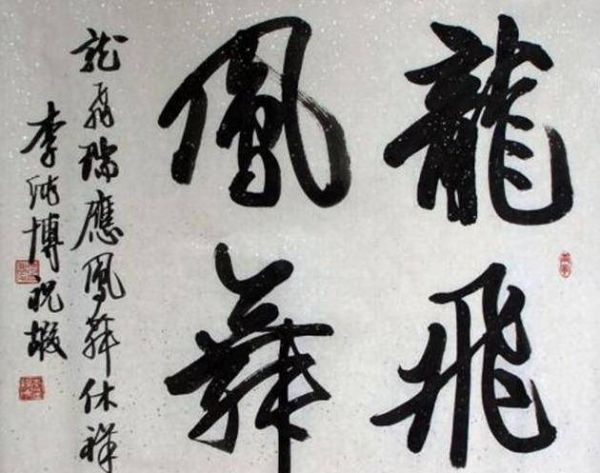 龍飛
鳳舞
龙飛瑞應鳳舞休祥
李純博祝嘏